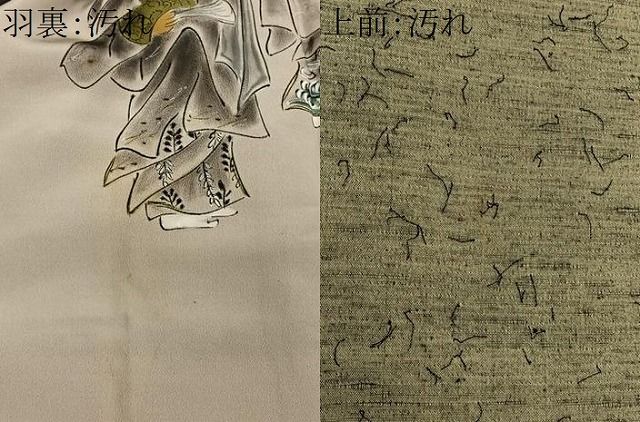 羽裏:汚れ
上前:汚れ